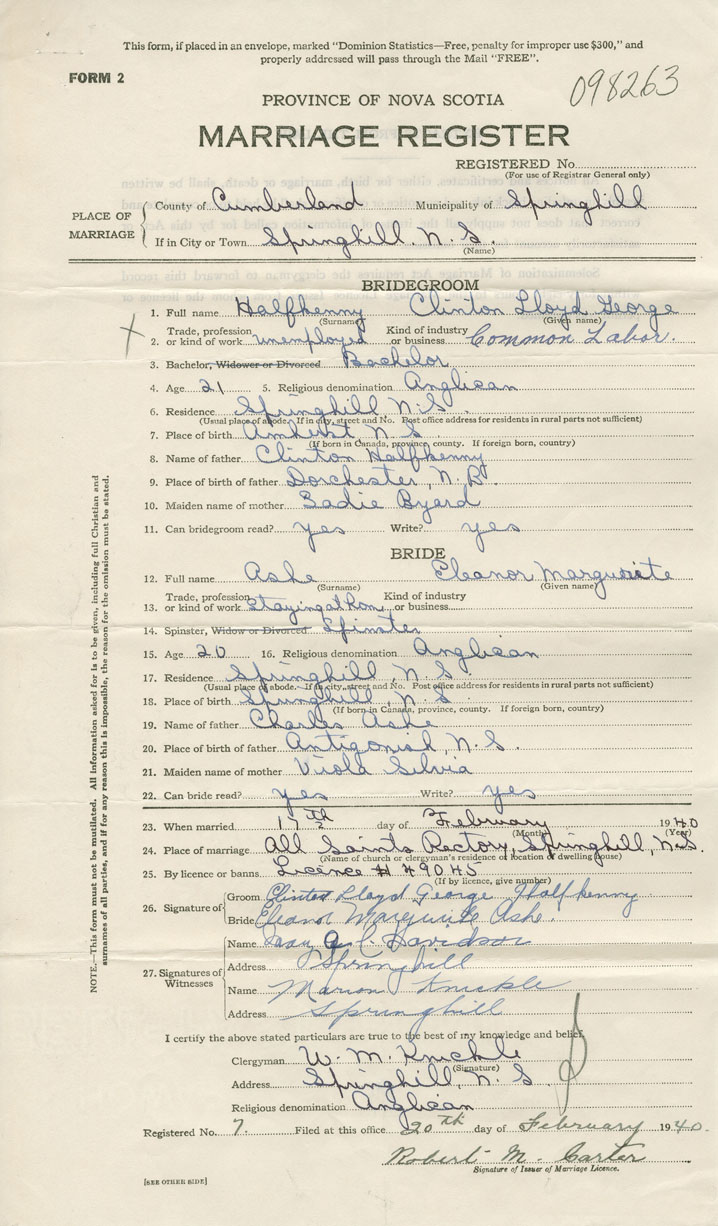 This form, if placed in an envelope, marked "Dominion Statistics—Free, penalty for improper use $300," and
properly addressed will pass through the Mail "FREE".
FORM 2
098263
PROVINCE OF NOVA SCOTIA
MARRIAGE REGISTER
REGISTERED No.
(For use of Registrar General only)
PLACE OF MARRIAGE
County of Cumberland Municipality of Springhill
If in City or Town Springhill. N. S.
(Name)
BRIDEGROOM
1. Full name Halfkenny Clinton Lloyd George
(Surname) (Given name)
2. Trade, profession or kind of work unemployed Kind of industry or business Common Labor.
3. Bachelor, Widower or Divorced Bachelor
4. Age 21 5. Religious denomination Anglican
6. Residence Springhill N. S.
(Usual place of abode. If in city, street and No. Post office address for residents in rural parts not sufficient)
7. Place of birth Amherst N. S
(If born in Canada, province, county. If foreign born, country)
8. Name of father Clinton Halfkenny
9. Place of birth of father Dorchester, N. B.
10. Maiden name of mother Sadie Byard
11. Can bridegroom read? yes Write? yes
BRIDE
12. Full name Ashe Eleanor Marguriete
(Surname) (Given name)
13. Trade, profession or kind of work stayingathom Kind of industry or business
14. Spinster, Widow or Divorced Spinster
15. Age 20 16. Religious denomination Anglican
17. Residence Springhill, N. S.
(Usual place of abode. If in city, street and No. Post office address for residents in rural parts not sufficient)
18. Place of birth Springhill, N. S
(If born in Canada, province, county. If foreign born, country)
19. Name of father Charles Ashe
20. Place of birth of father Antigonish, N. S.
21. Maiden name of mother Viola Silvia
22. Can bride read? yes Write? yes
23. When married 17th day of February 1940
(Month) (Year)
24. Place of marriage All Saints Rectory, Springhill, N.S.
(Name of church or clergyman's residence or location of dwelling house)
25. By licence or banns Licence # 49045
(If by licence, give number)
26. Signature of
Groom Clinton Lloyd George Halfkenny
Bride Eleanor Marguriete Ashe.
27. Signatures of Witnesses
Name Davidson
Address Springhill
Name Marion Knickle
Address Springhill
I certify the above stated particulars are true to the best of my knowledge and belief.
Clergyman W. M. Knickle
(Signature)
Address Springhill, N. S.
Religious denomination Anglican
Registered No. 7. Filed at this office 20th day of February 1940.
Robert M. Carter
Signature of Issuer of Marriage Licence.
[SEE OTHER SIDE]
NOTE.—This form must not be mutilated. All information asked for is to be given, including full Christian and
surnames of all parties, and if for any reason this is impossible, the reason for the omission must be stated.